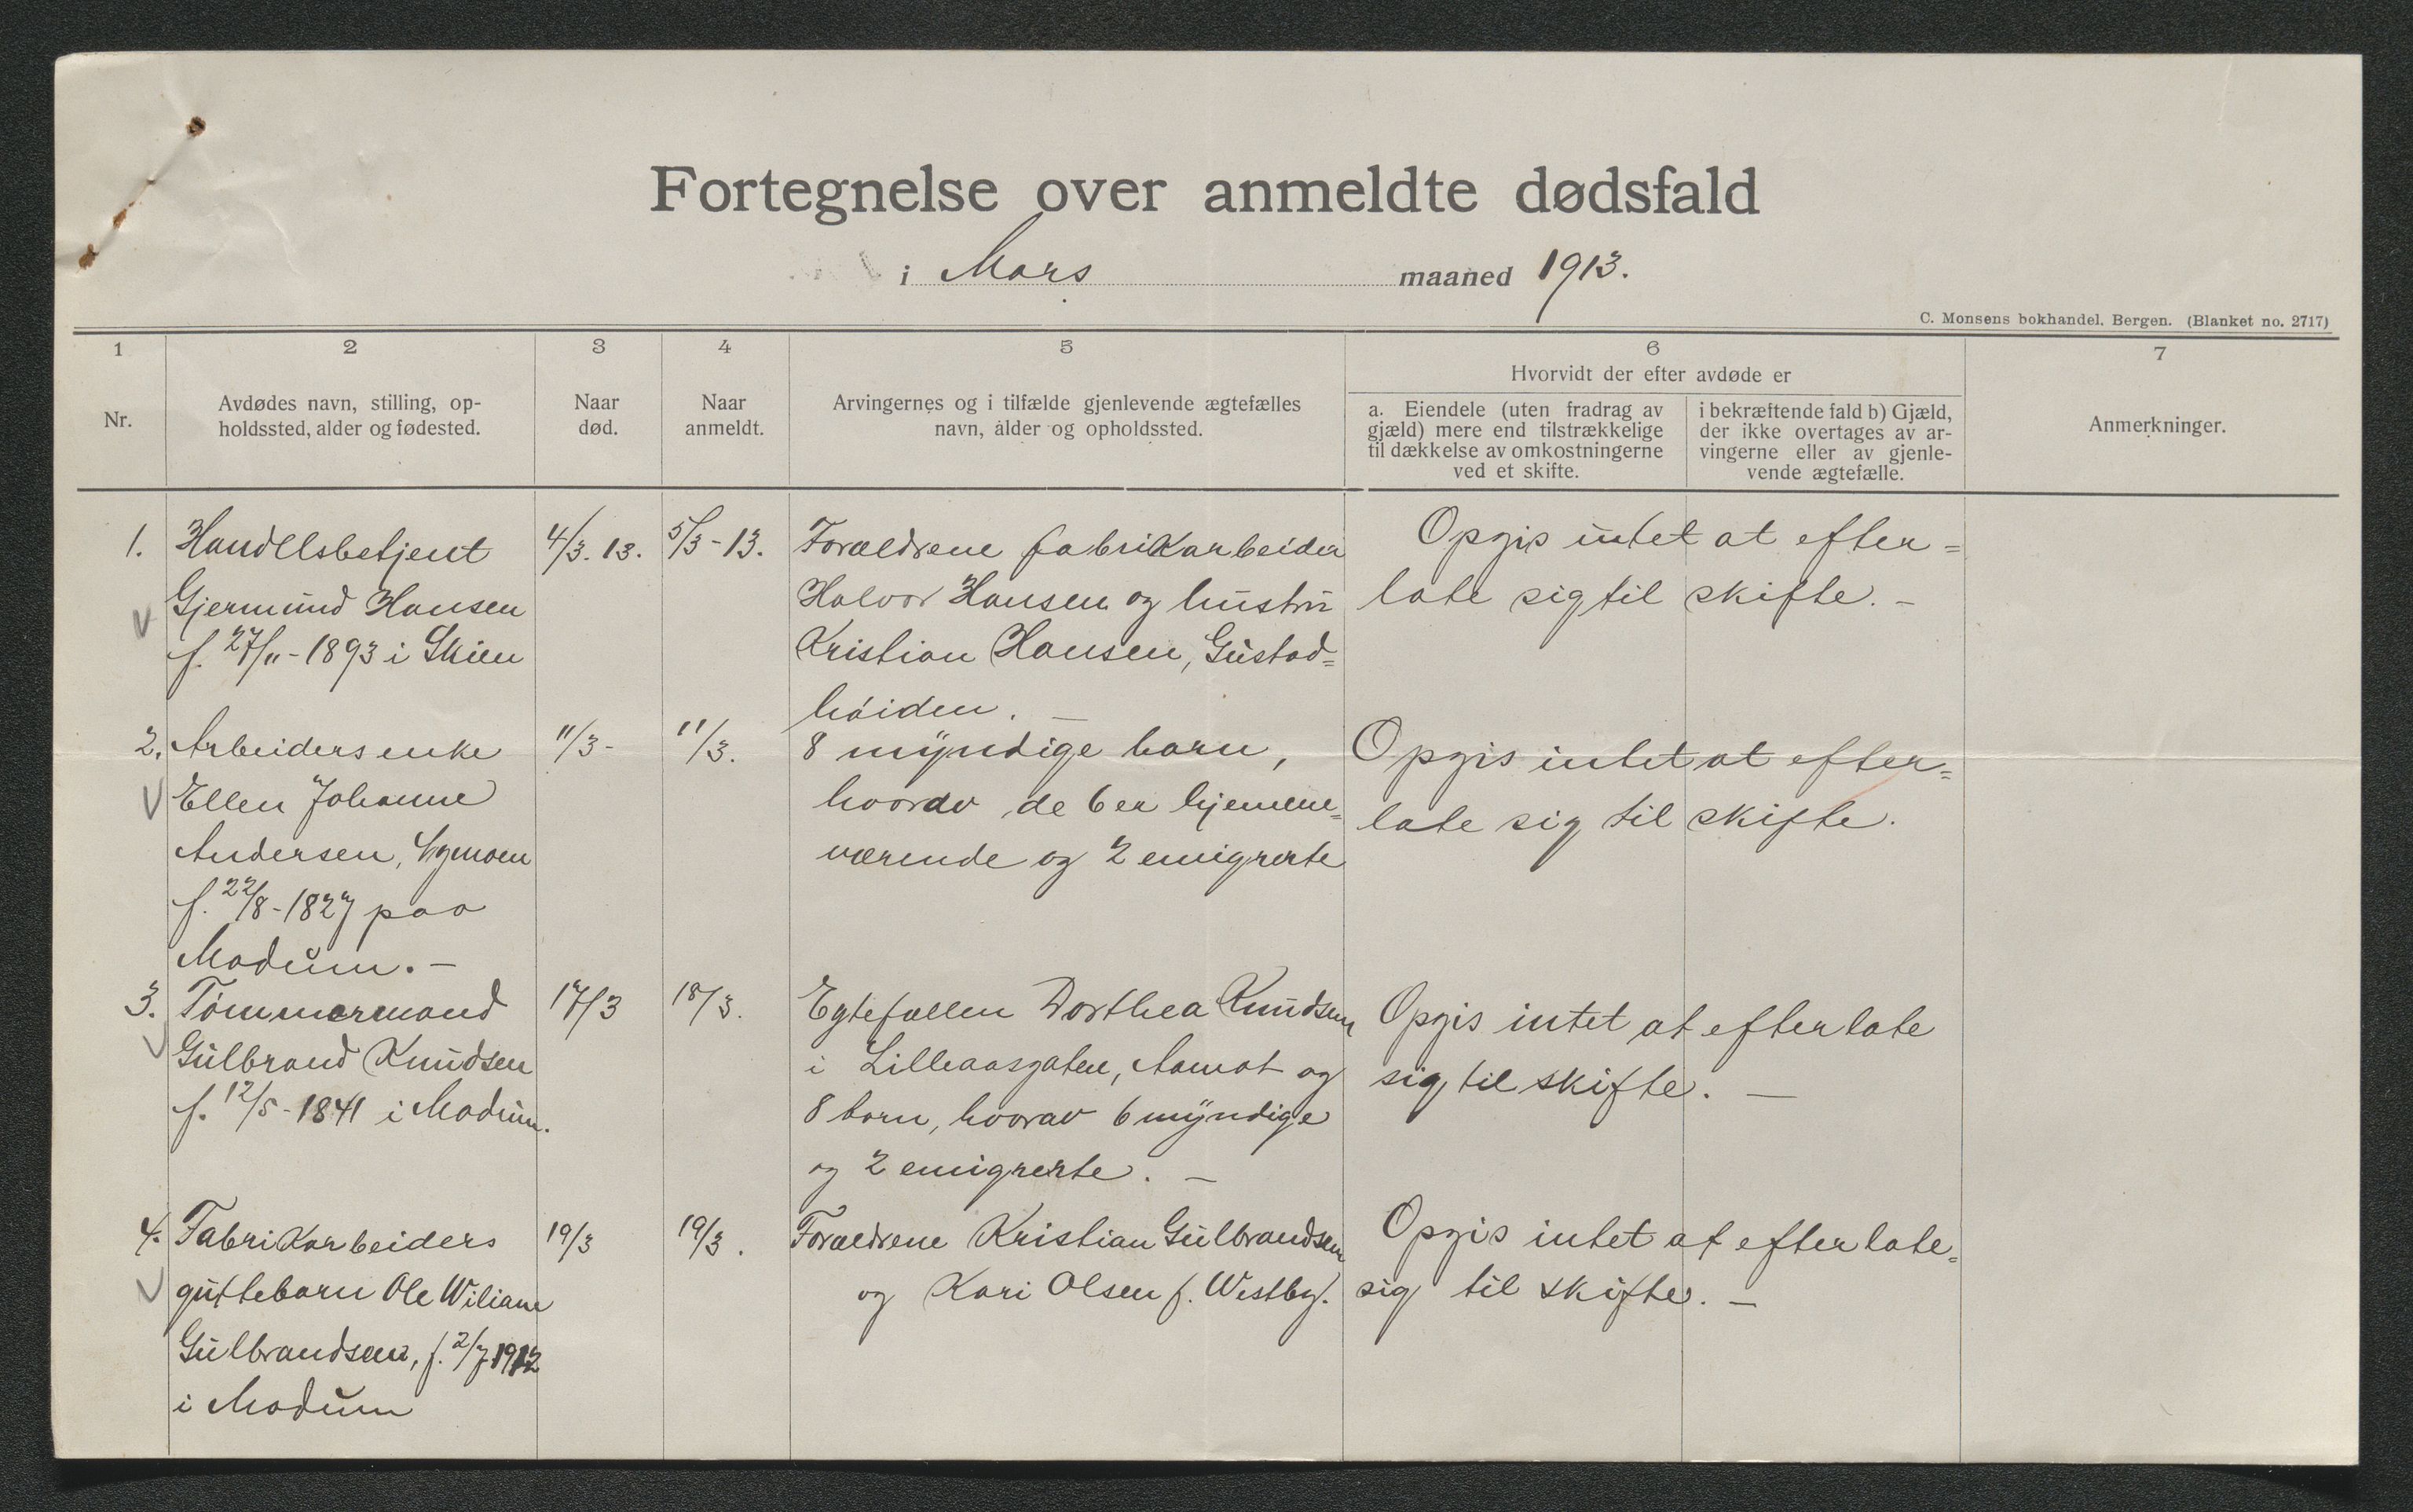 Fortegnelse over anmeldte dødsfald
i Mars maaned 1913.
C. Monsens bokhandel, Bergen. (Blanket no. 2717)
1 2 3 4 5 6 7
Nr.
Avdødes navn, stilling, op-
holdssted, alder og fødested.
Naar
død.
Naar
anmeldt.
Arvingernes og i tilfælde gjenlevende ægtefælles
navn, alder og opholdssted.
Hvorvidt der efter avdøde er
a. Eiendele (uten fradrag av
gjæld) mere end tilstrækkelige
til dækkelse av omkostningerne
ved et skifte.
i bekræftende fald b) Gjæld,
der ikke overtages av ar-
vingerne eller av gjenle-
vende ægtefælle.
Anmerkninger.
1. Handelsbetjent
Gjermund Hansen
f. 27/11-1893 i Skien
4/3. 13.
5/3-13.
Forældrene fabrikarbeider
Halvor Hansen og hustru
Kristian Hansen, Gustad=
høiden. —
Opgis intet at efter=
late sig til skifte. —
2. Arbeiders enke
Ellen Johanne
Andersen,
f. 22/8-1827 paa
Modum. —
11/3-
11/3.
8 myndige barn,
hvorav de 6 er hjemme=
værende og 2 emigrerte
Opgis intet at efter=
late sig til skifte.
3. Tømmermand
Gulbrand Knudsen
f. 12/5-1841 i Modum.
17/3
18/3.
Egtefællen Dorthea Knudsen
i Lilleaasgaten, Aamot og
8 barn, hvorav 6 myndige
og 2 emigrerte. —
Opgis intet at efterlate
sig til skifte. —
4. Fabrikarbeiders
guttebarn Ole Wiliam
Gulbrandsen, f. 2/7 1912
i Modum
19/3
19/3.
Forældrene Kristian Gulbrandsen
og Kari Olsen f. Westby.
Opgis intet at efterlate=
sig til skifte. —